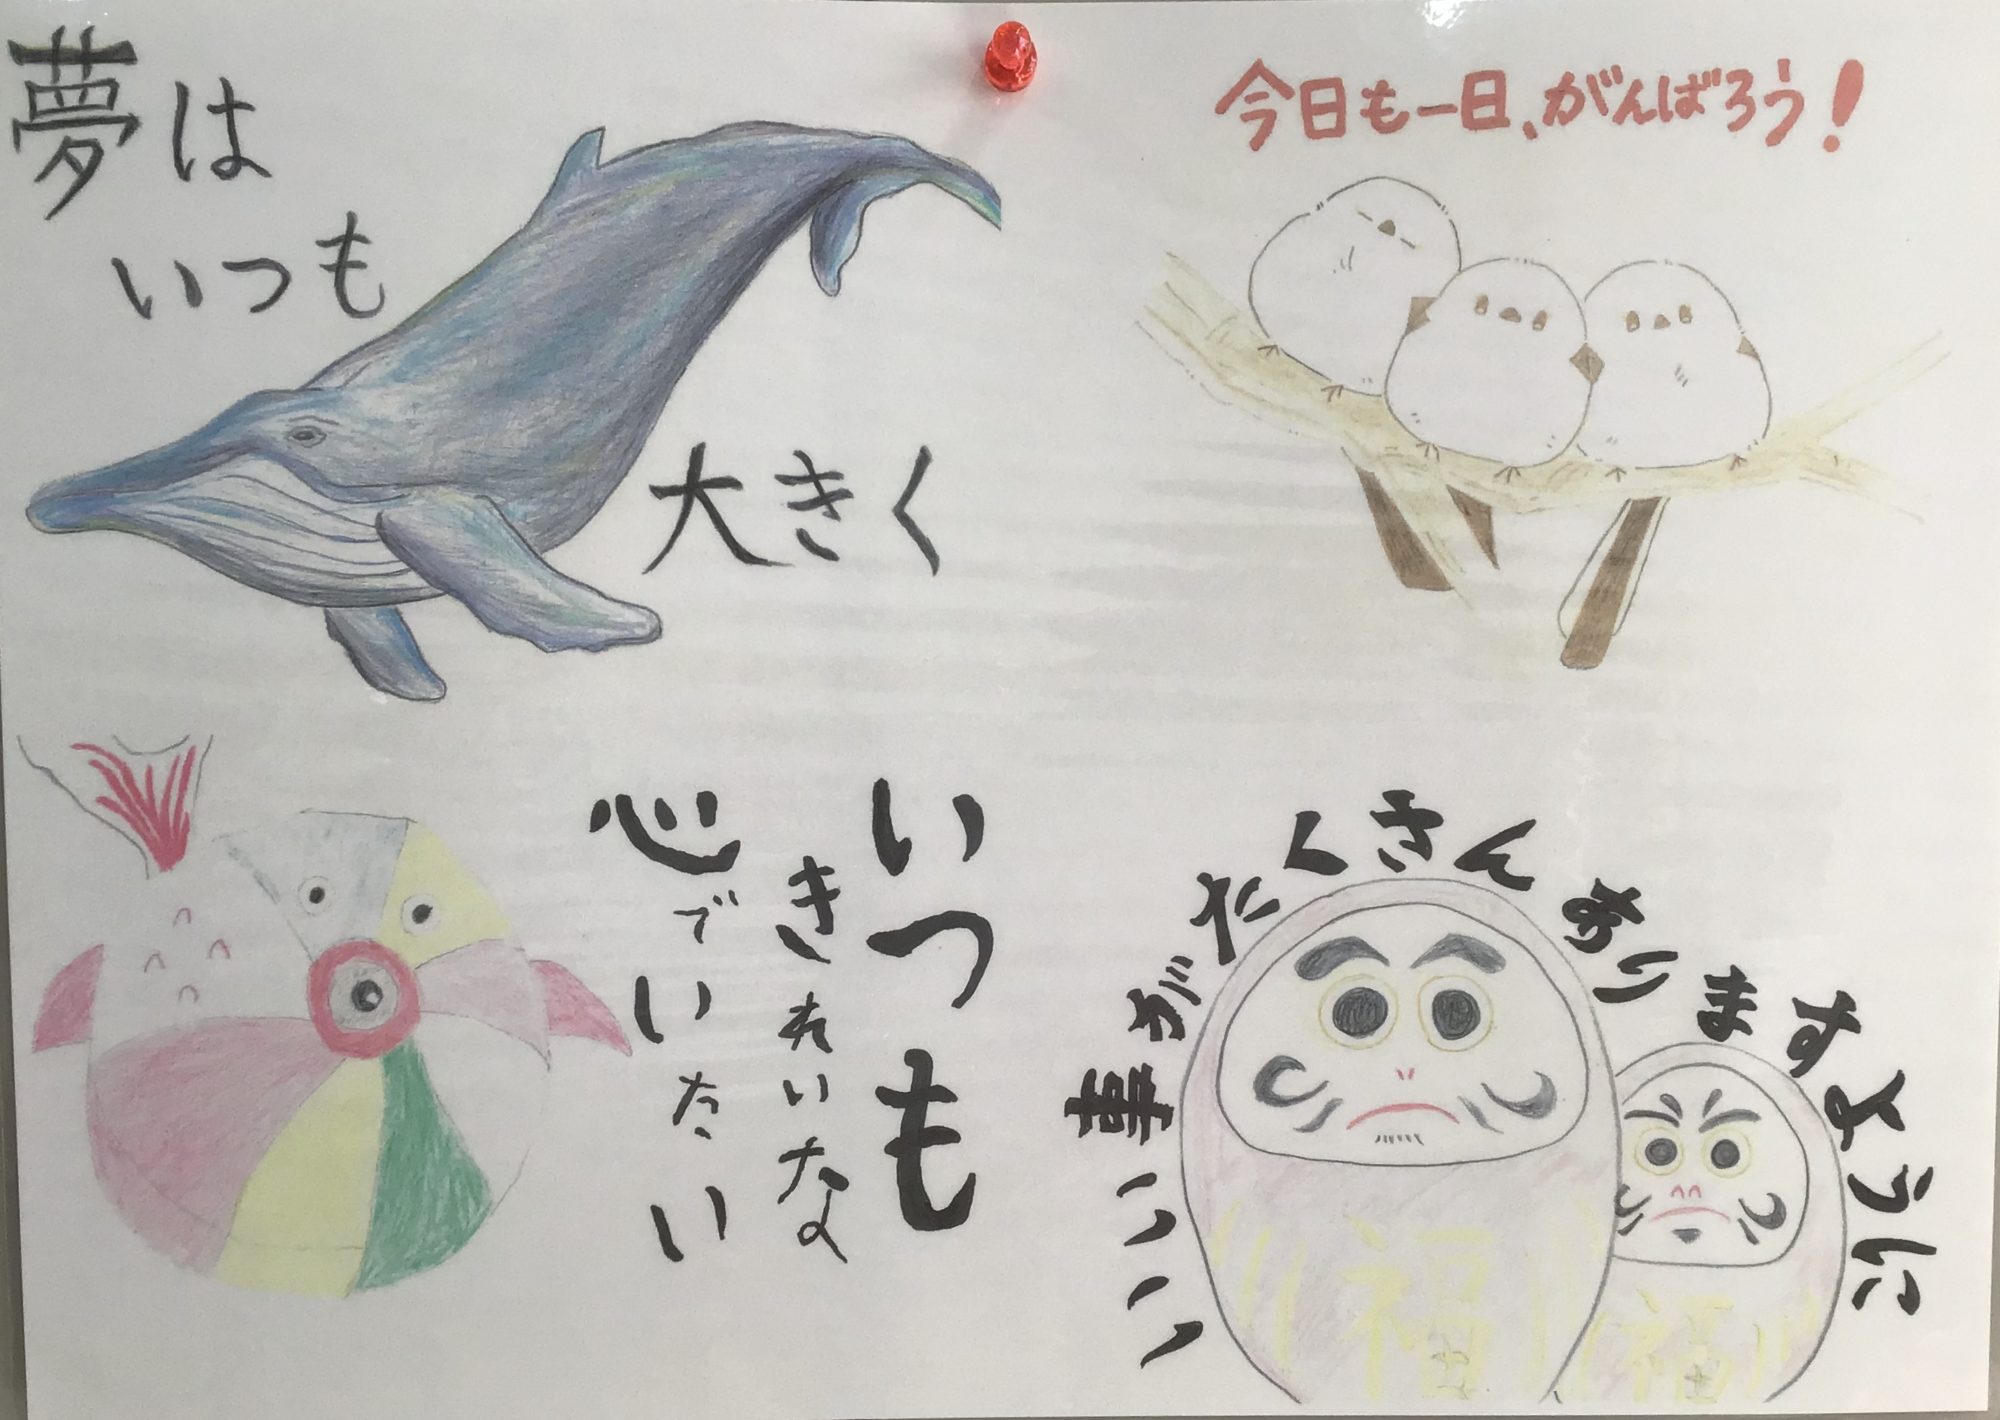 夢は
いつも
大きく
今日も一日、がんばろう!
いつも
きれいな
心でいたい
いい事がたくさんありますように
福
福